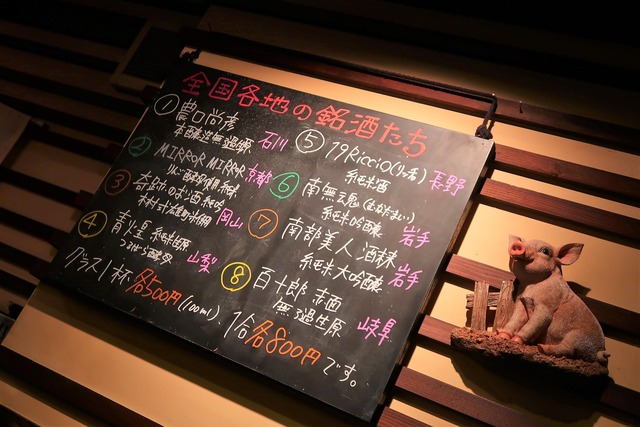 全国各地の銘酒たち
① 農口尚彦
本醸造無濾過 石川
② MIRROR MIRROR
京都
③ 奇跡のお酒 純米
木村式雄町 岡山
④ 青煌 純米
つるばら酵母 山梨
⑤ 19 Riccio(リッチョ)
純米酒 長野
⑥ 南無魂(なむたましい)
純米吟醸 岩手
⑦ 南部美人 酒
純米大吟醸 岩手
⑧ 百十郎 赤面
無ろ過生原 岐阜
グラス1杯 各500円(100ml)、1合各800円です。